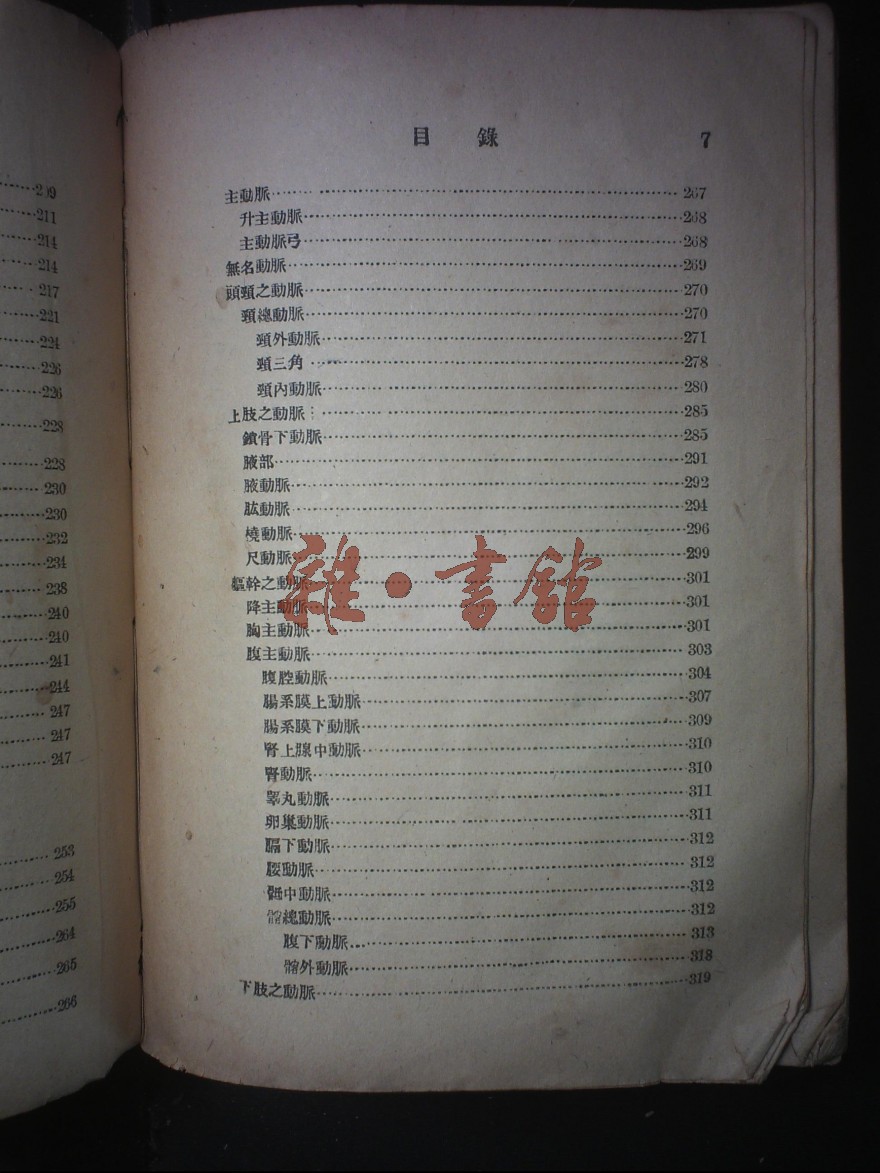 209
211
214
214
217
221
224
226
226
228
228
230
230
232
234
238
240
240
241
244
247
247
247
253
254
255
264
265
266
目錄 7
主動脈 267
升主動脈 268
主動脈弓 268
無名動脈 269
頭頸之動脈 270
頸總動脈 270
頸外動脈 271
頸三角 278
頸內動脈 280
上肢之動脈 285
鎖骨下動脈 285
腋部 291
腋動脈 292
肱動脈 294
橈動脈 296
尺動脈 299
軀幹之動脈 301
降主動脈 301
胸主動脈 301
腹主動脈 303
腹腔動脈 304
腸系膜上動脈 307
腸系膜下動脈 309
腎上腺中動脈 310
腎動脈 310
睪丸動脈 311
卵巢動脈 311
膈下動脈 312
腰動脈 312
骶中動脈 312
髂總動脈 312
腹下動脈 313
髂外動脈 318
下肢之動脈 319
雜·書館